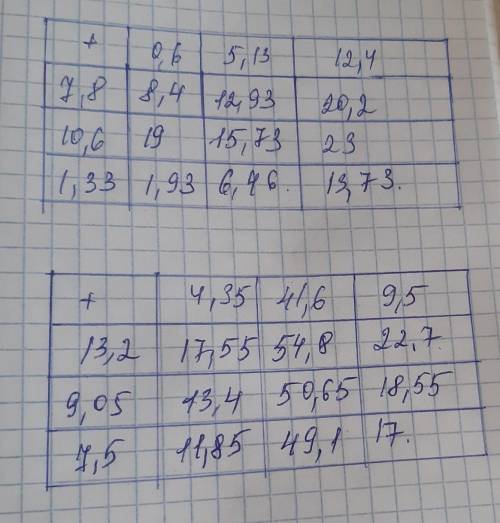 + 0,6 5,13 12,4
7,8 8,4 12,93 20,2
10,6 19 15,73 23
1,33 1,93 6,46. 13,73.
+ 4,35 41,6 9,5
13,2 17,55 54,8 22,7.
9,05 13,4 50,65 18,55
7,5 11,85 49,1 17.